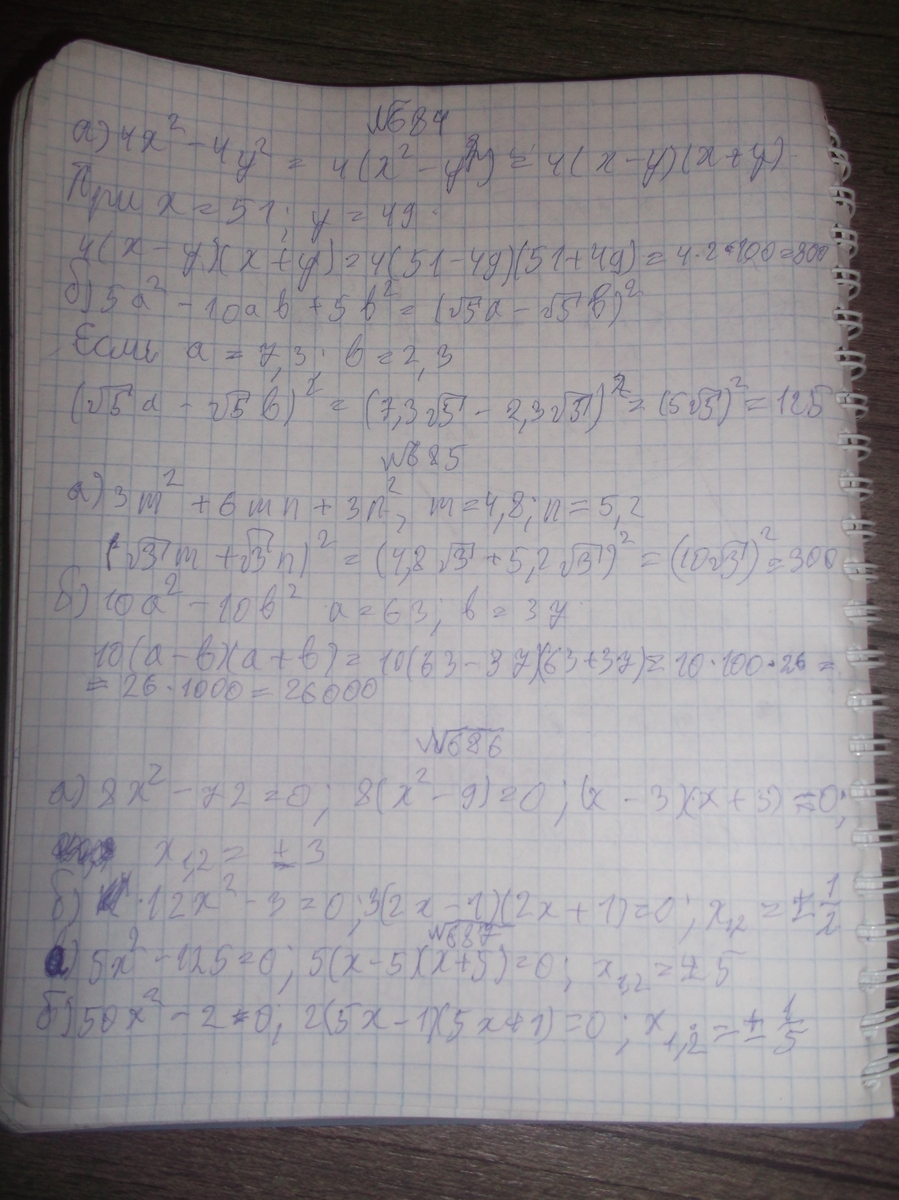 №684
а) 4x² - 4y² = 4(x² - y²) = 4(x-y)(x+y)
При x = 51; y = 49.
4(x-y)(x+y) = 4(51-49)(51+49) = 4·2·100 = 800
б) 5a² - 10ab + 5b² = (√5a - √5b)²
Если a = 7,3; b = 2,3
(√5a - √5b)² = (7,3√5 - 2,3√5)² = (5√5)² = 125
№685
а) 3m² + 6mn + 3n², m=4,8; n = 5,2
(√3m + √3n)² = (4,8√3 + 5,2√3)² = (10√3)² = 300
б) 10a² - 10b² a = 63; b = 37
10(a-b)(a+b) = 10(63-37)(63+37) = 10·100·26 =
= 26·1000 = 26000
№686
а) 8x² - 72 = 0; 8(x² - 9) = 0; (x-3)(x+3) = 0;
x1,2 = ±3
б) 12x² - 3 = 0; 3(2x-1)(2x+1) = 0; x1,2 = ±1/2
№687
а) 5x² - 125 = 0; 5(x-5)(x+5) = 0; x1,2 = ±5
б) 50x² - 2 = 0; 2(5x-1)(5x+1) = 0; x1,2 = ±1/5